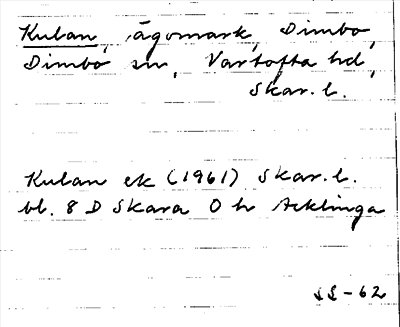 Kulan, ägomark, Dimbo,
Dimbo sn, Vartofta hd,
Skar. l.
Kulan ek (1961) Skar. l.
bl. 8 D Skara O h Acklinga
SL-62